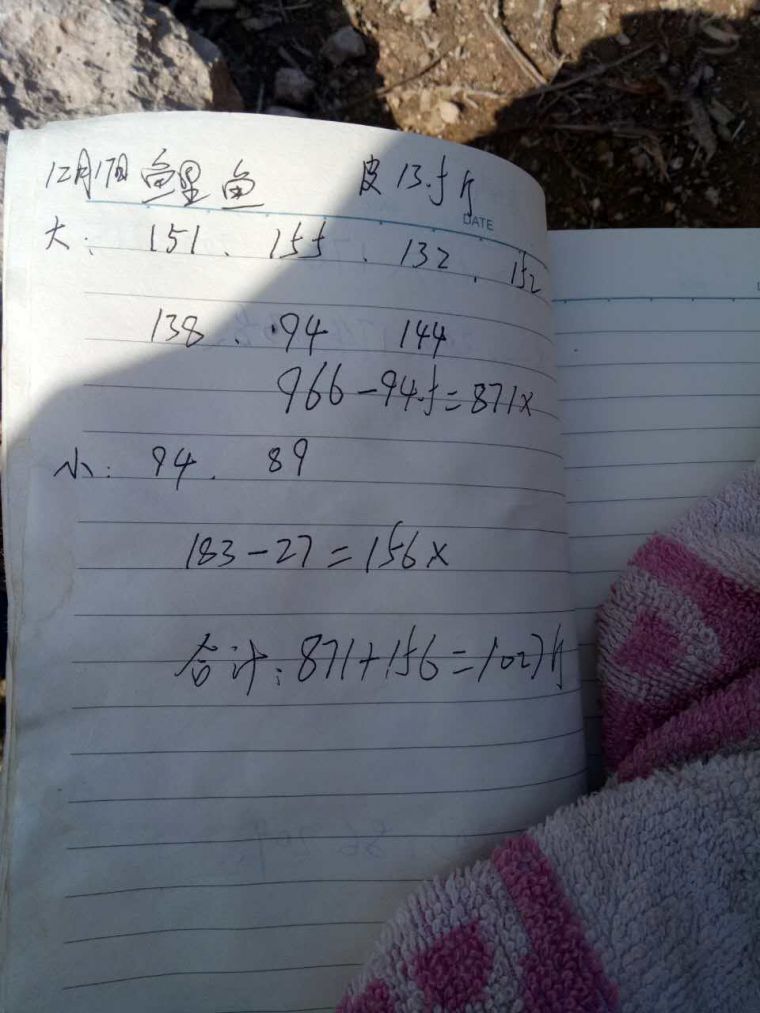 12月17日 鲤鱼 皮13.5斤
DATE
大: 151、155、132、152
138、94 144
966-94.5=871x
小: 94、89
183-27=156x
合计:871+156=1027斤